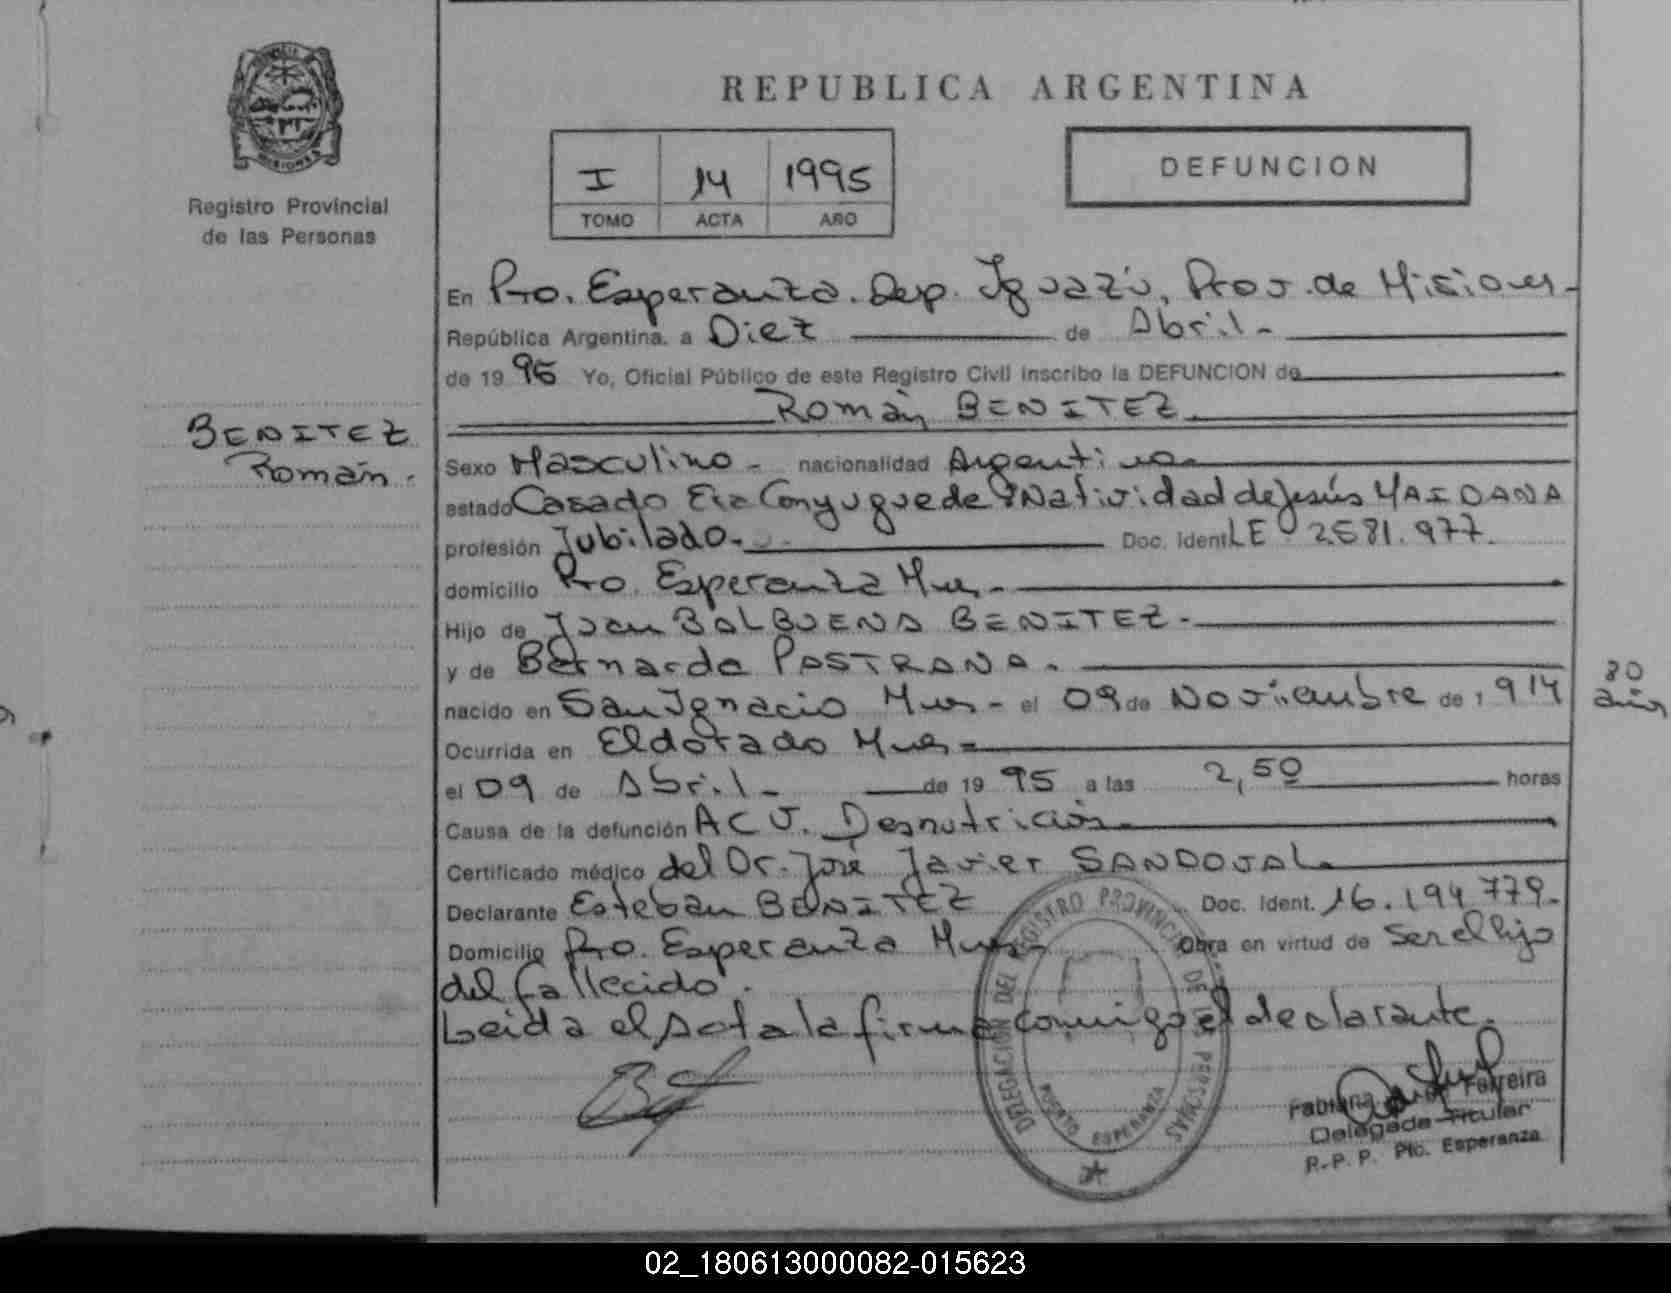 REPUBLICA ARGENTINA
PROVINCIA
MISIONES
Registro Provincial
de las Personas
I 14 1995
TOMO ACTA AÑO
DEFUNCION
En Pto. Esperanza. Dep. Iguazú, Prov. de Misiones.-
República Argentina, a Diez de Abril.-
de 1995 Yo, Oficial Público de este Registro Civil inscribo la DEFUNCION de
Román BENITEZ
BENITEZ
Román.-
Sexo Masculino.- nacionalidad Argentina.-
estado Casado Era Conyugue de Natividad de Jesús MAIDANA
profesión Jubilado.- Doc. Ident. LE 2.581.977.
domicilio Pto. Esperanza Mnes.-
Hijo de Juan BALBUENA BENITEZ.-
y de Bernarda PASTRANA.
nacido en San Ignacio Mnes.- el 09 de Noviembre de 1914
80
años
Ocurrida en Eldorado Mnes=
el 09 de Abril.- de 1995 a las 2,50 horas
Causa de la defunción ACV. Desnutrición.-
Certificado médico del Dr. José Javier SANDOVAL.
Declarante Esteban BENITEZ Doc. Ident. 16.194.779.-
Domicilio Pto. Esperanza Mnes.- Obra en virtud de Ser el hijo
del fallecido.
Leida el Acta la firma conmigo el declarante.
DELEGACION DEL REGISTRO PROVINCIAL DE LAS PERSONAS
PUERTO ESPERANZA
Fabiana Ferreira
Delegada Titular
R.P.P. Pto. Esperanza
02_180613000082-015623